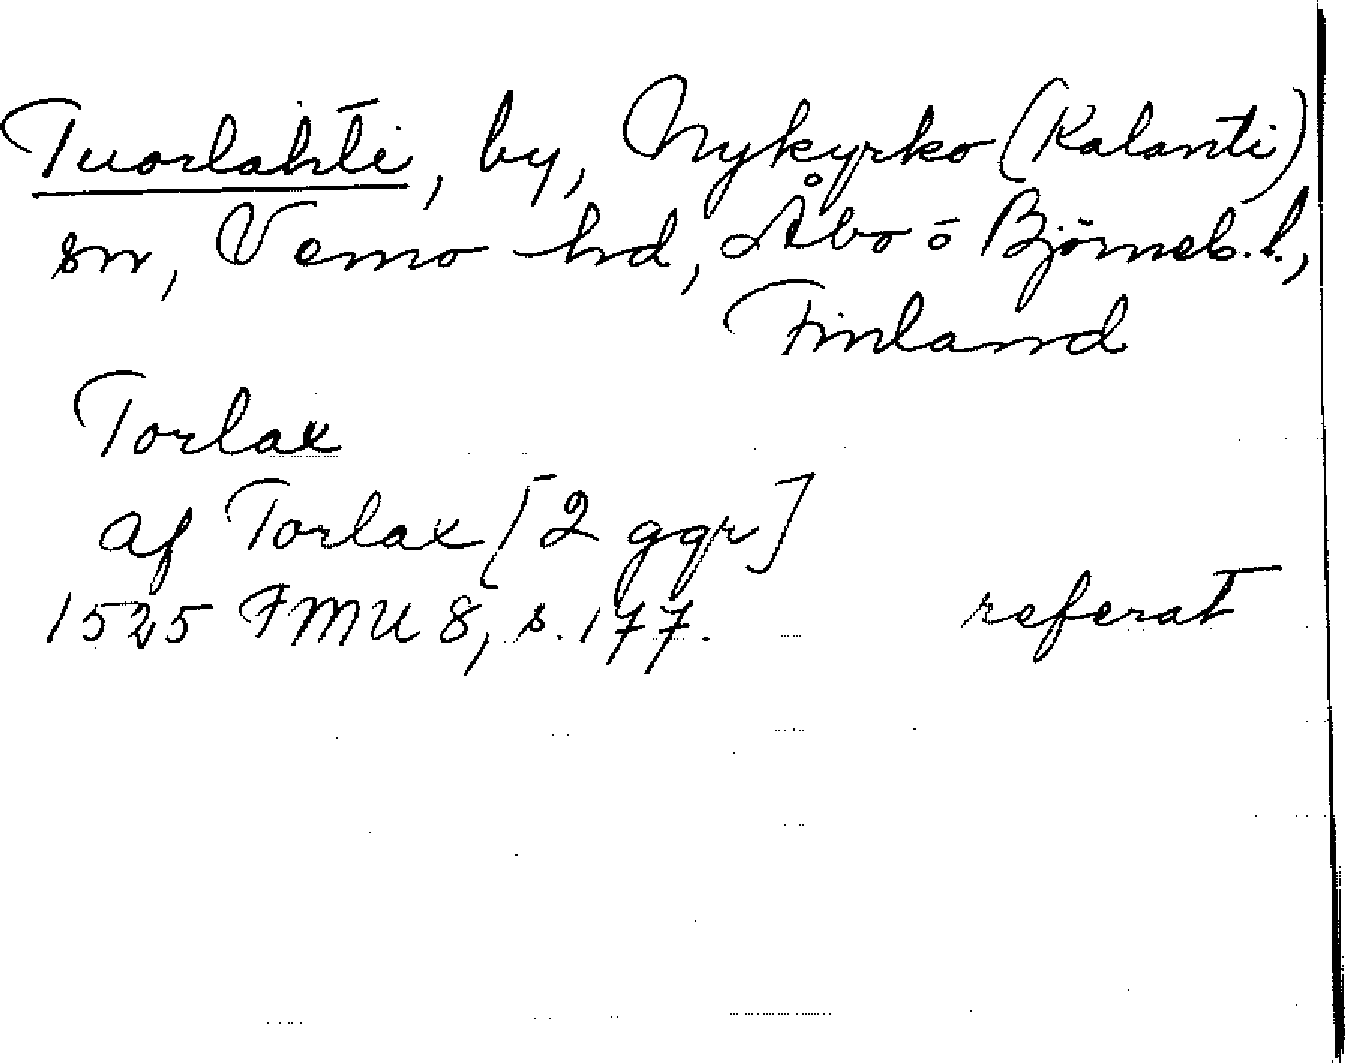 Tuorlahti, by, Nykyrko (Kalanti)
sn, Vemo hd, Åbo o Björneb. l.,
Finland
Torlax
af Torlax [2 ggr]
1525 FMU 8, s. 177. referat